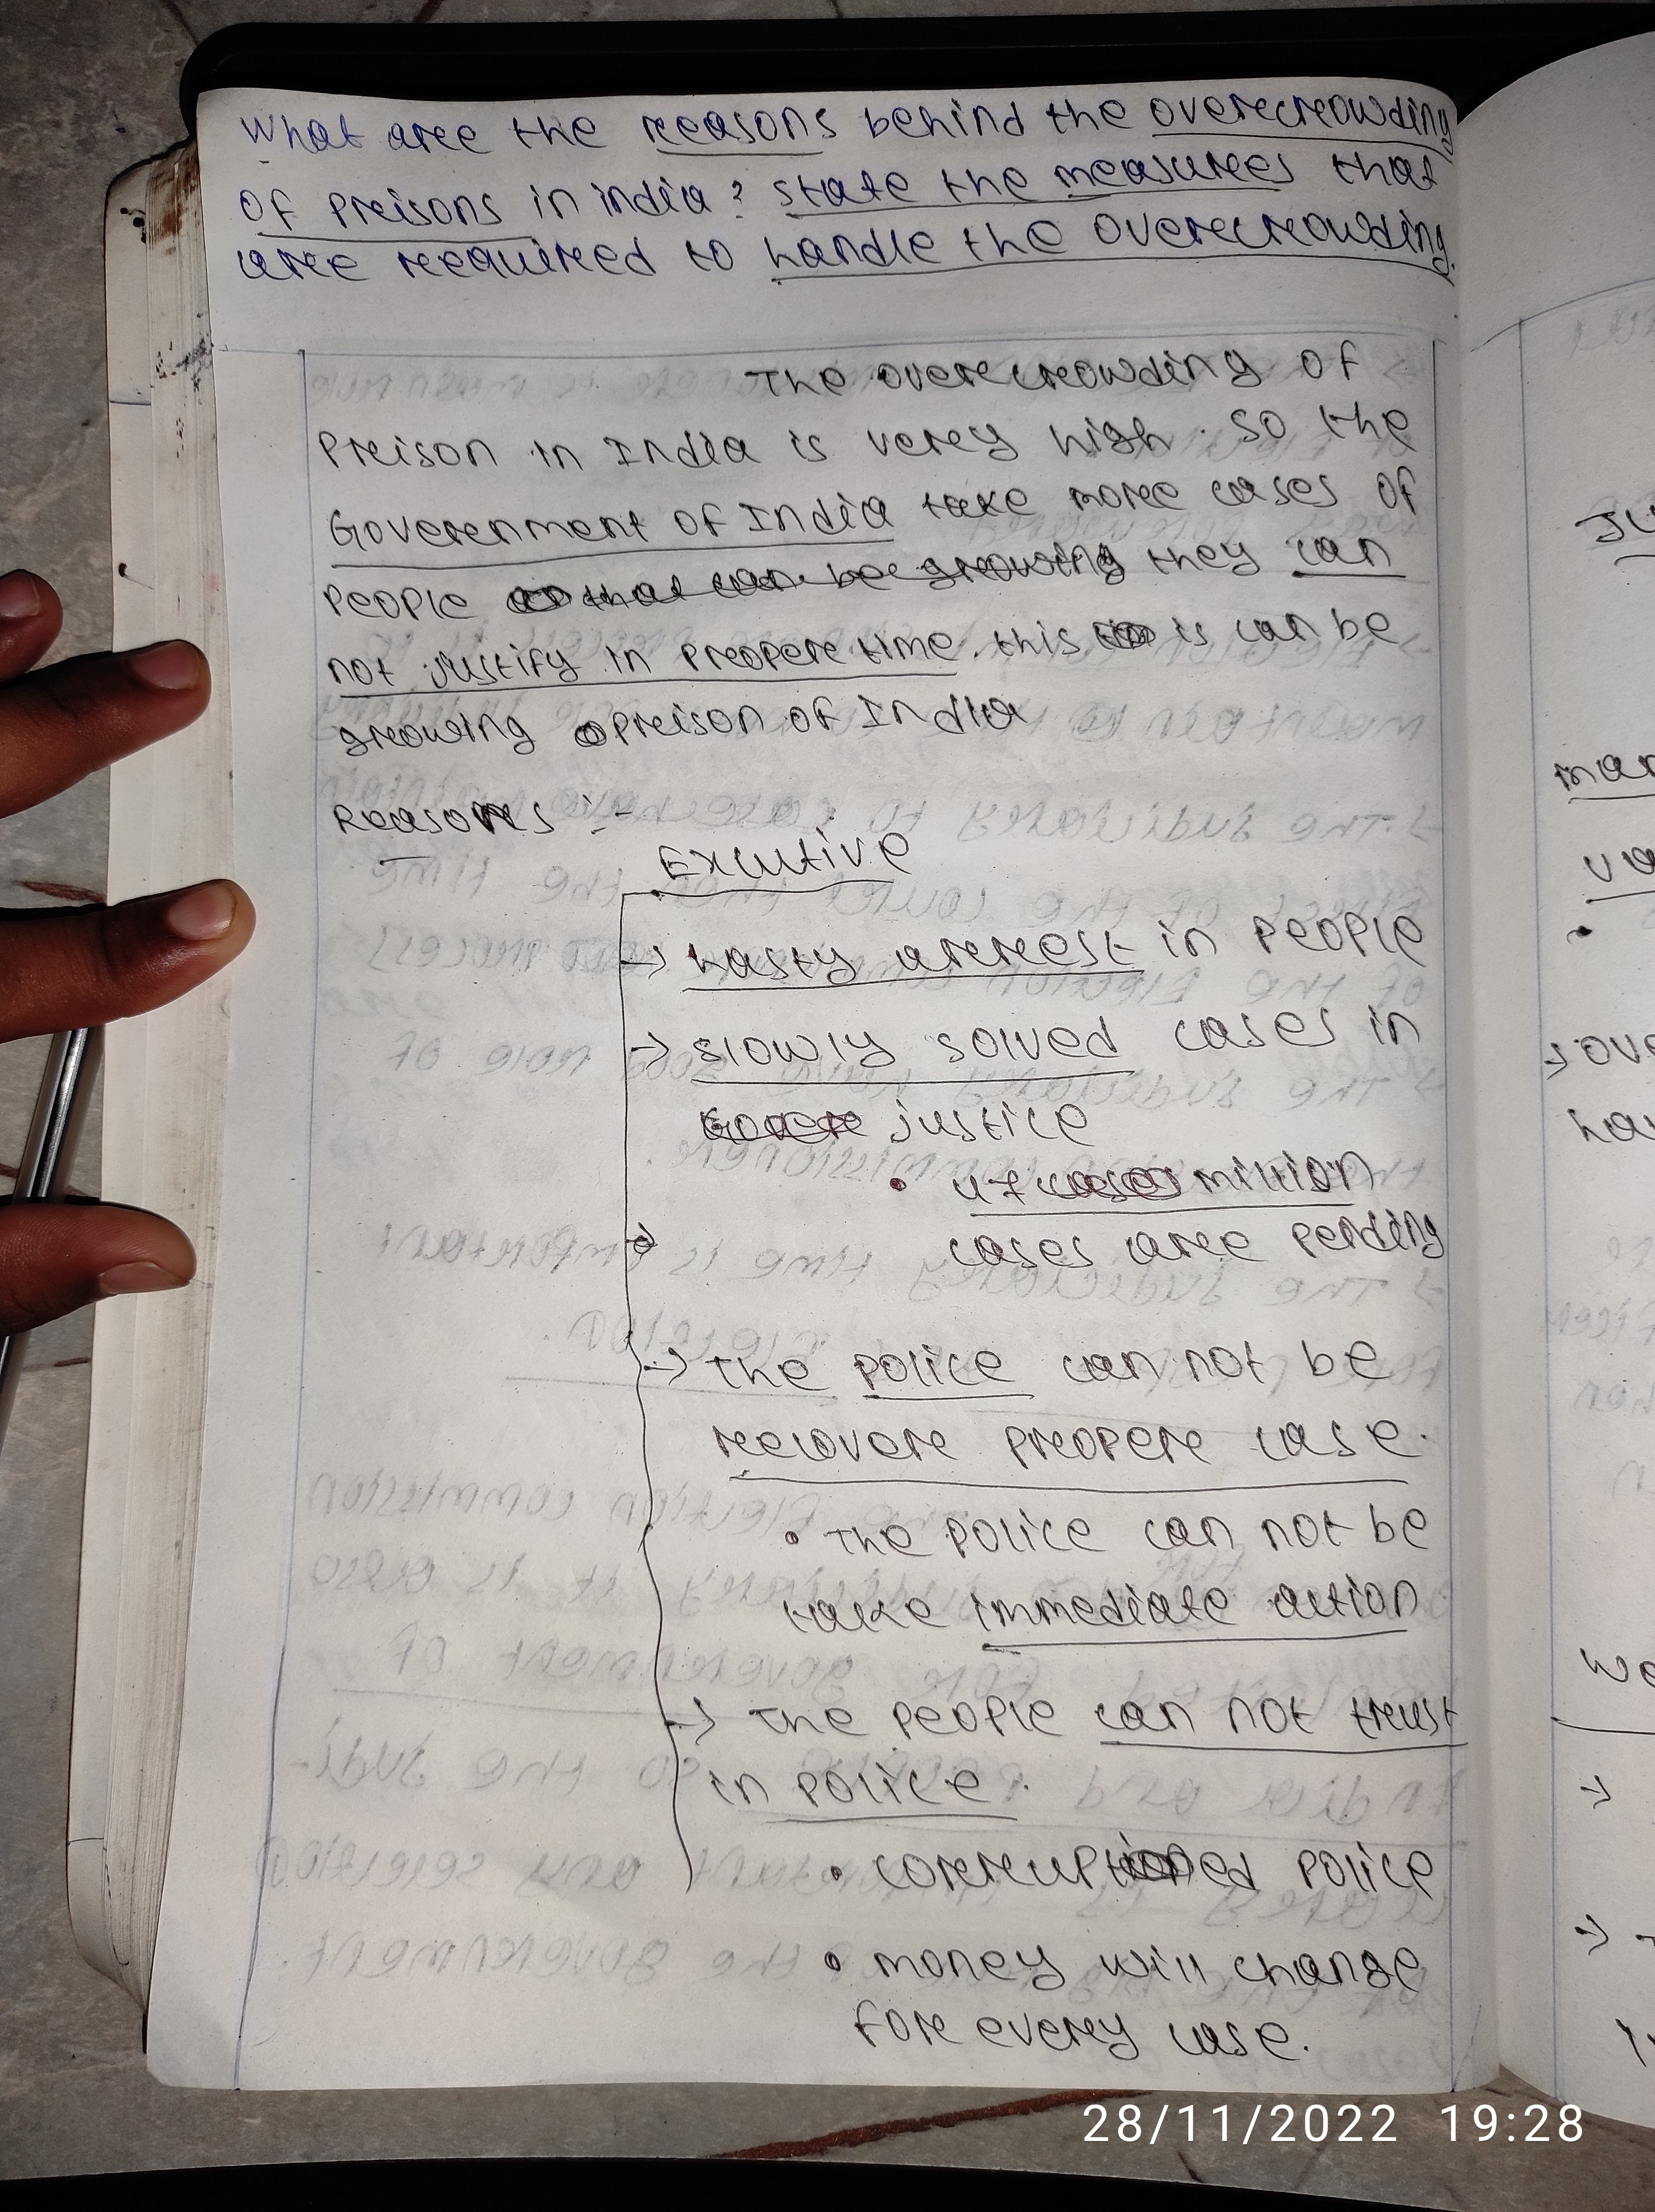 What aree the reeasons behind the overecreowding
of preisons in india? state the measurees that
aree reequireed to handle the overecreowding.
The overecreowding of
Preison in India is verey high. So the
Goverenment of India take moree cases of
people they can
not justify in preopere time. this is can be
greowing preison of India
Reasons :-
Excutive
→ hasty arerest in people
→ slowly solved cases in
justice
million
cases aree pending
→ The police can not be
recovere preopere case.
• The police can not be
take immediate action
→ The people can not treust
in police.
• correuptioned police
• money will change
fore everey case.
28/11/2022 19:28